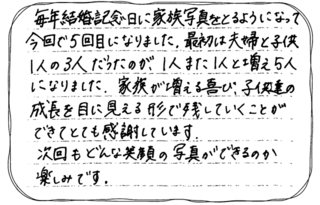 毎年結婚記念日に家族写真をとるようになって
今回で5回目になりました。最初は夫婦と子供
1人の3人だったのが1人また1人と増え5人
になりました。家族が増える喜び、子供達の
成長を目に見える形で残していくことが
できてとても感謝しています。
次回もどんな笑顔の写真ができるのか
楽しみです。